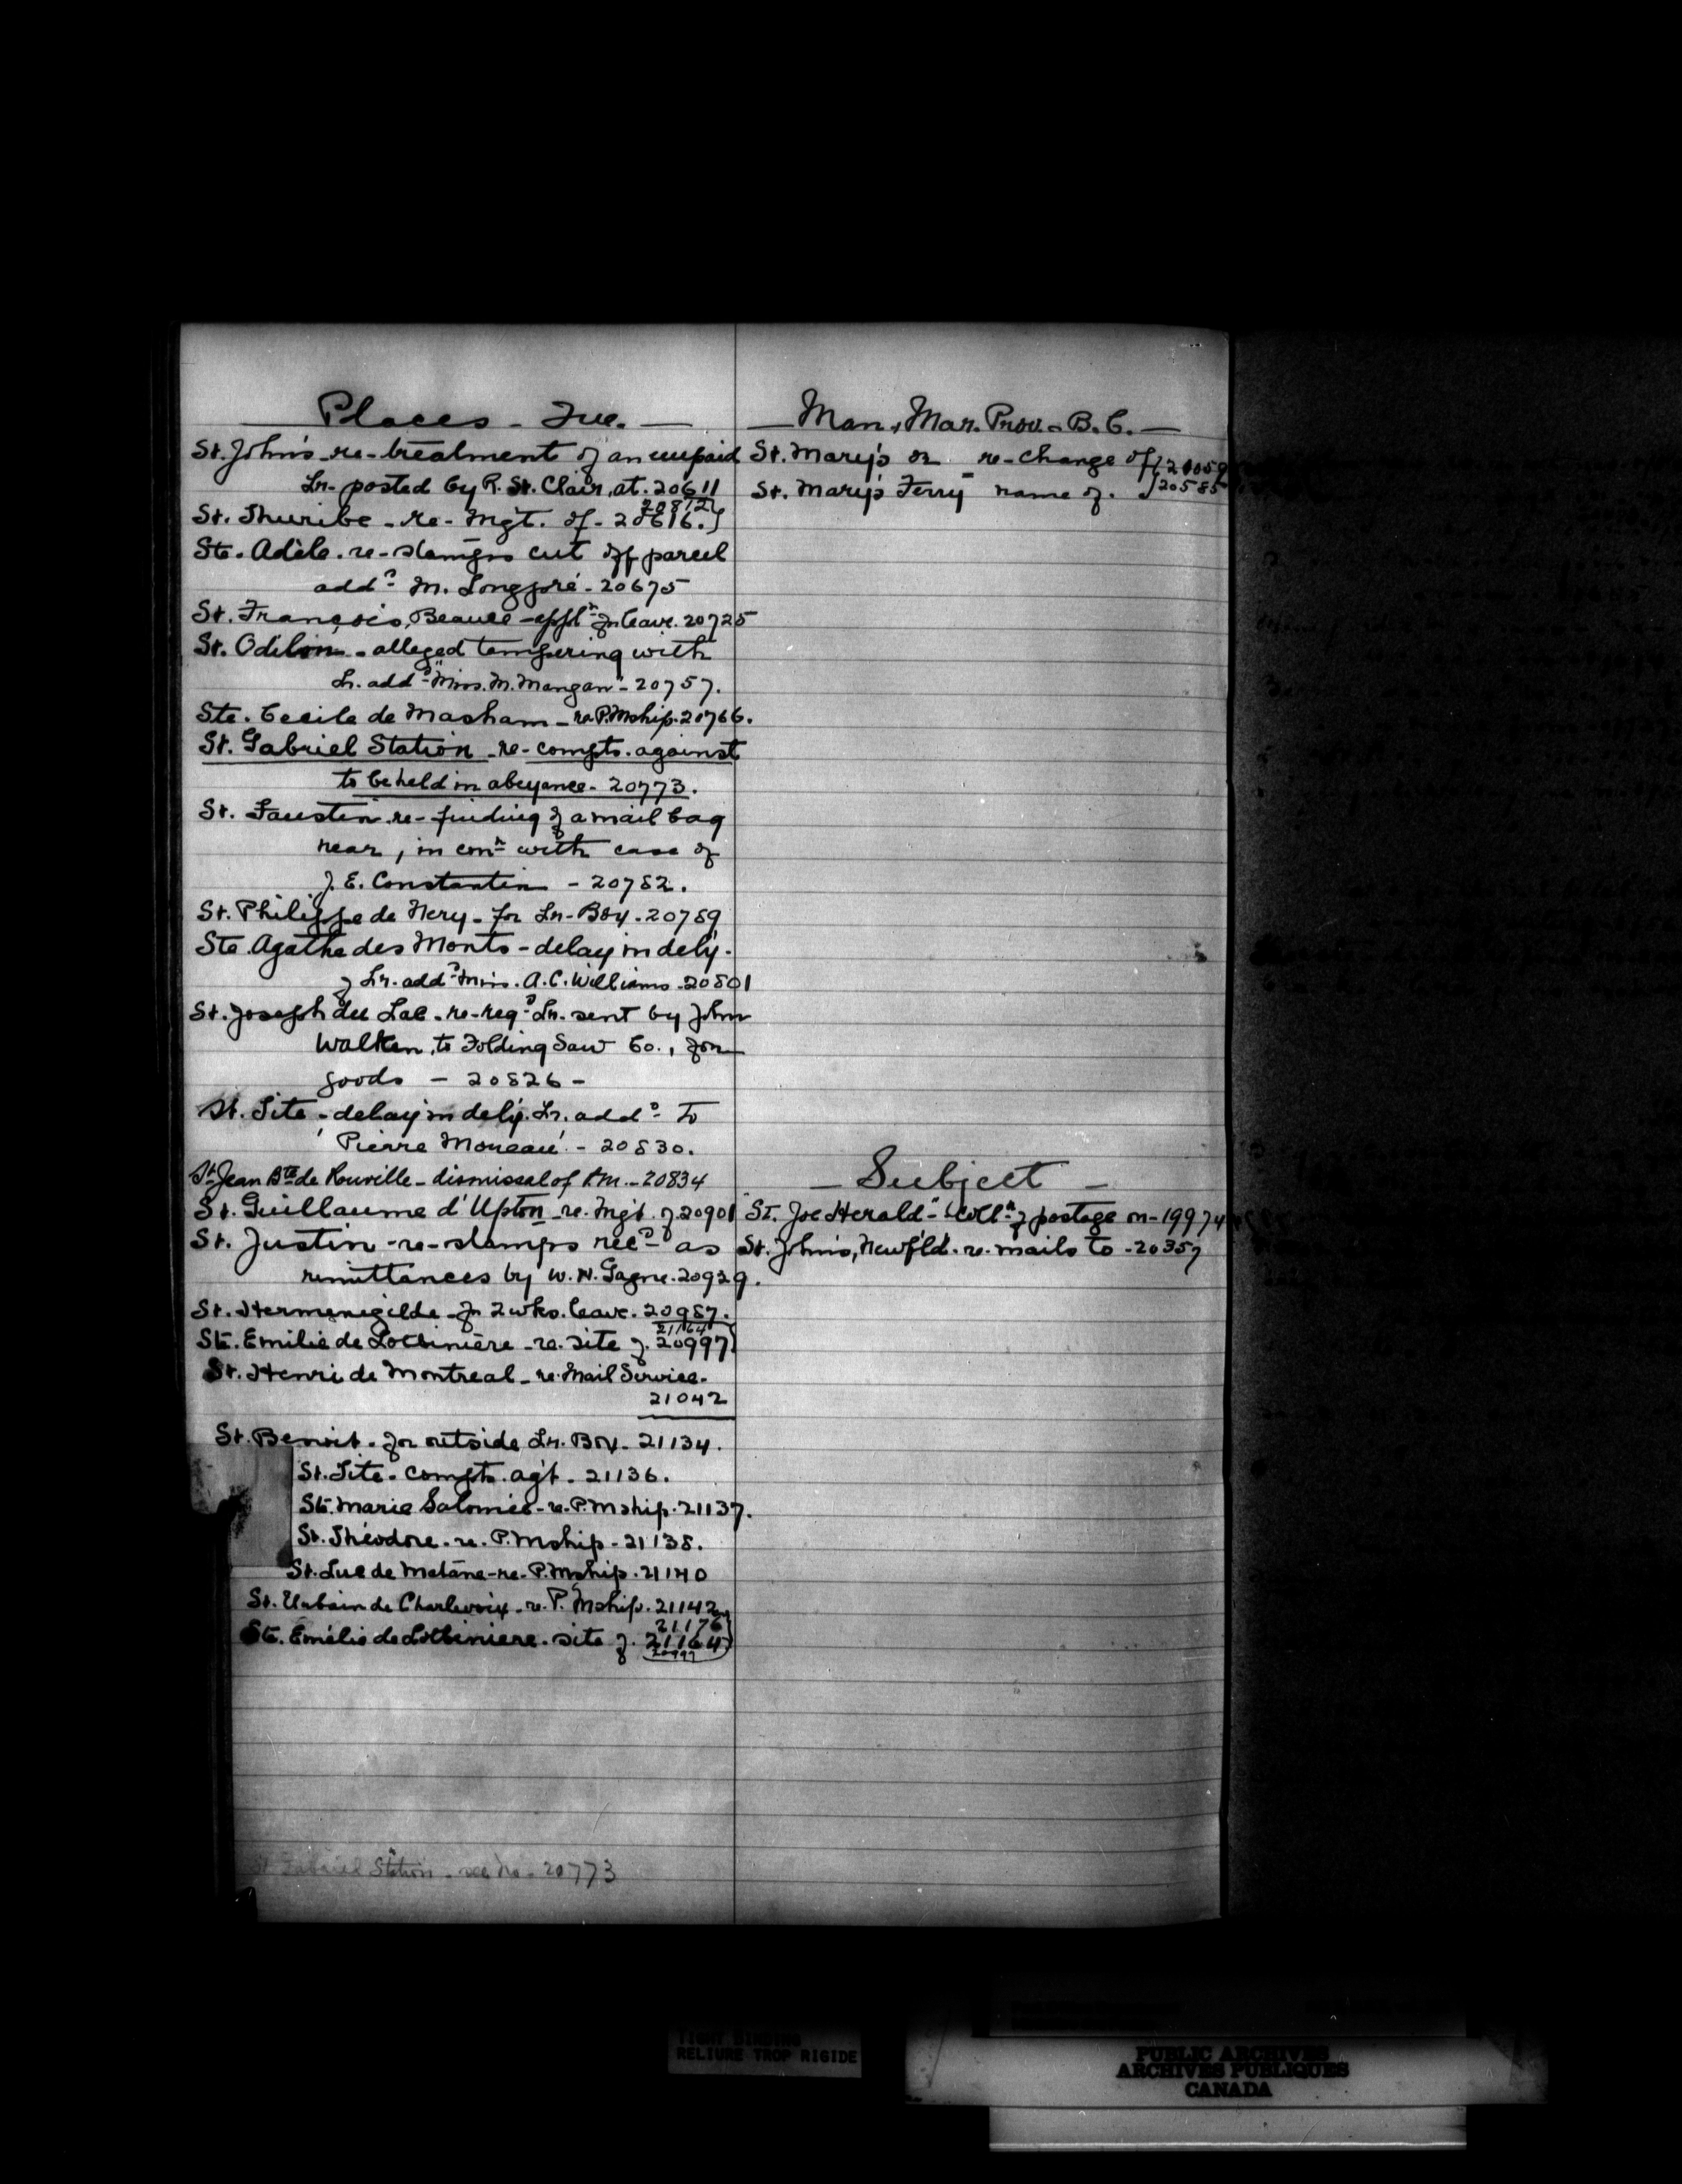 Places - Que.
St. John's - re - treatment of an unpaid
Lr. posted by R. St. Clair, at. 20611
20812
St. Thuribe - re - Mgt. of - 20616.
Ste. Adèle - re - stamps cut off parcel
addd M. Longpré - 20675
St. François, Beauce - appln for leave. 20725
St. Odilon - alleged tampering with
Lr. addd "Miss. M. Mangan" - 20757.
Ste. Cecile de Masham - re P.Mship. 20766.
St. Gabriel Station - re - compts. against
to be held in abeyance - 20773.
St. Faustin - re - finding of a mail bag
near, in conn with case of
J. E. Constantin - 20782.
St. Philippe de Nery - for Lr - Box - 20789
Ste. Agathe des Monts - delay in dely.
of Lr. addd Miss. A. C. Williams - 20801
St. Joseph du Lac - re - regd Lr. sent by John
Walken, to Folding Saw Co., for
goods - 20826 -
St. Tite - delay in dely. Lr. addd to
'Pierre Moreau' - 20830.
St Jean Bte de Rouville - dismissal of P.M. - 20834
St. Guillaume d'Upton - re. Mgt. of 20901
St. Justin - re - stamps recd as
remittances by W. N. Gagne. 20929.
St. Hermenegilde - for 2 wks. leave. 20987.
21164
Ste. Emilie de Lotbinière - re. site of. 20997
St. Henri de Montreal - re. Mail Service.
21042
St. Benoit - for outside Lr. Box - 21134.
St. Tite - compts. agt. - 21136.
Ste. Marie Salomée - re. P.Mship. 21137.
St. Théodore - re. P.Mship - 21138.
St. Luc de Matane - re. P.Mship. 21140
St. Urbain de Charlevoix - re. P.Mship. 21142
21176
Ste. Emélie de Lotbiniere. site of. 21164
20997
St. Gabriel Station - see No - 20773
Man, Mar. Prov. - B.C.
St. Mary's or re - change of 20059
St. Mary's Ferry name of. 20585
Subject
"St. Joe Herald" - Colln of postage on - 19974
St. John's, Newf'ld. re. mails to - 20357
TIGHT BINDING
RELIURE TROP RIGIDE
PUBLIC ARCHIVES
ARCHIVES PUBLIQUES
CANADA